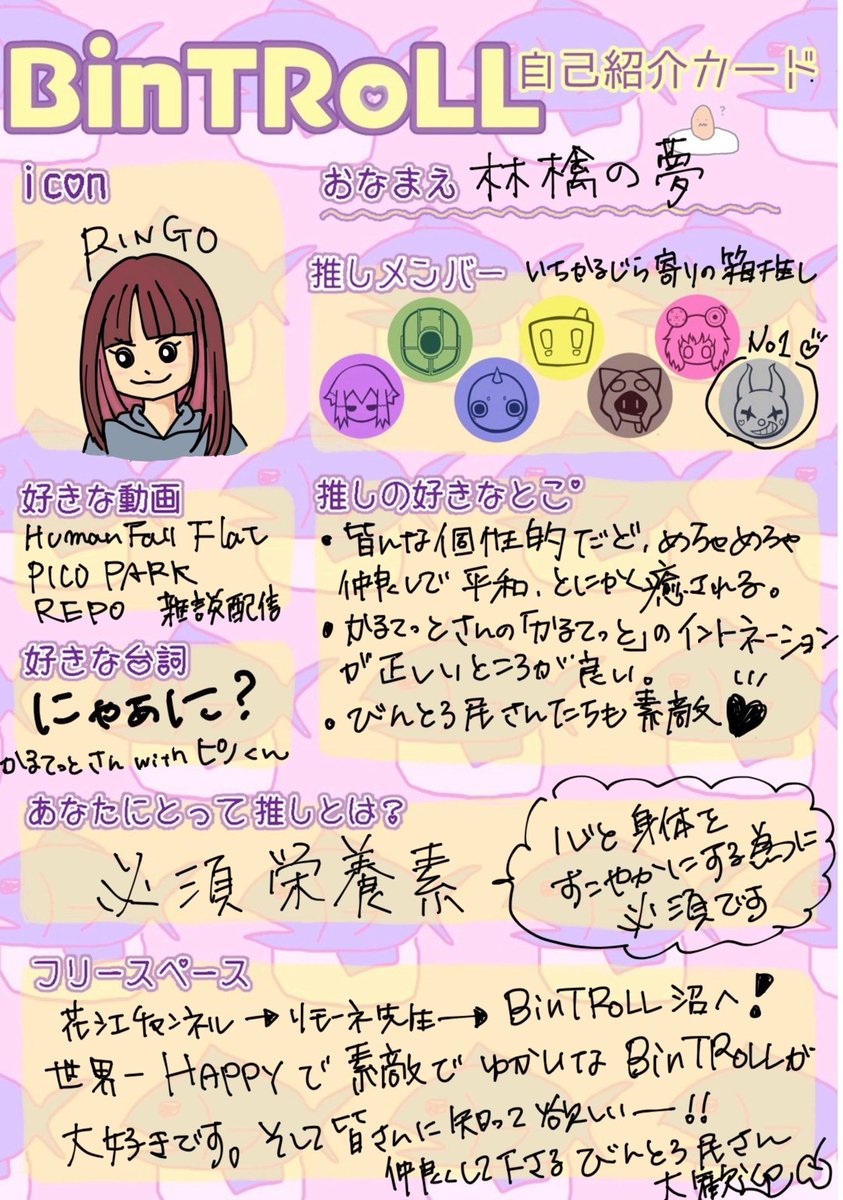 BinTRoLL 自己紹介カード
?
icon
RINGO
おなまえ 林檎の夢
推しメンバー いちかるじら寄りの箱推し
No1
好きな動画
Human Fall Flat
PICO PARK
REPO 雑談配信
推しの好きなとこ
・皆んな個性的だど、めちゃめちゃ
仲良しで平和、とにかく癒される。
・かるてっとさんの「かるてっと」のイントネーション
が正しいところが良い。
・びんとろ民さんたちも素敵♥
好きな台詞
にゃぁに?
かるてっとさん with ピノくん
あなたにとって推しとは?
必須栄養素
心と身体を
すこやかにする為に
必須です
フリースペース
花江チャンネル→リモーネ先生→BinTRoLL沼へ!
世界一HAPPYで素敵でゆかいなBinTRoLLが
大好きです。そして皆さんに知って欲しいー!!
仲良くして下さるびんとろ民さん
大歓迎